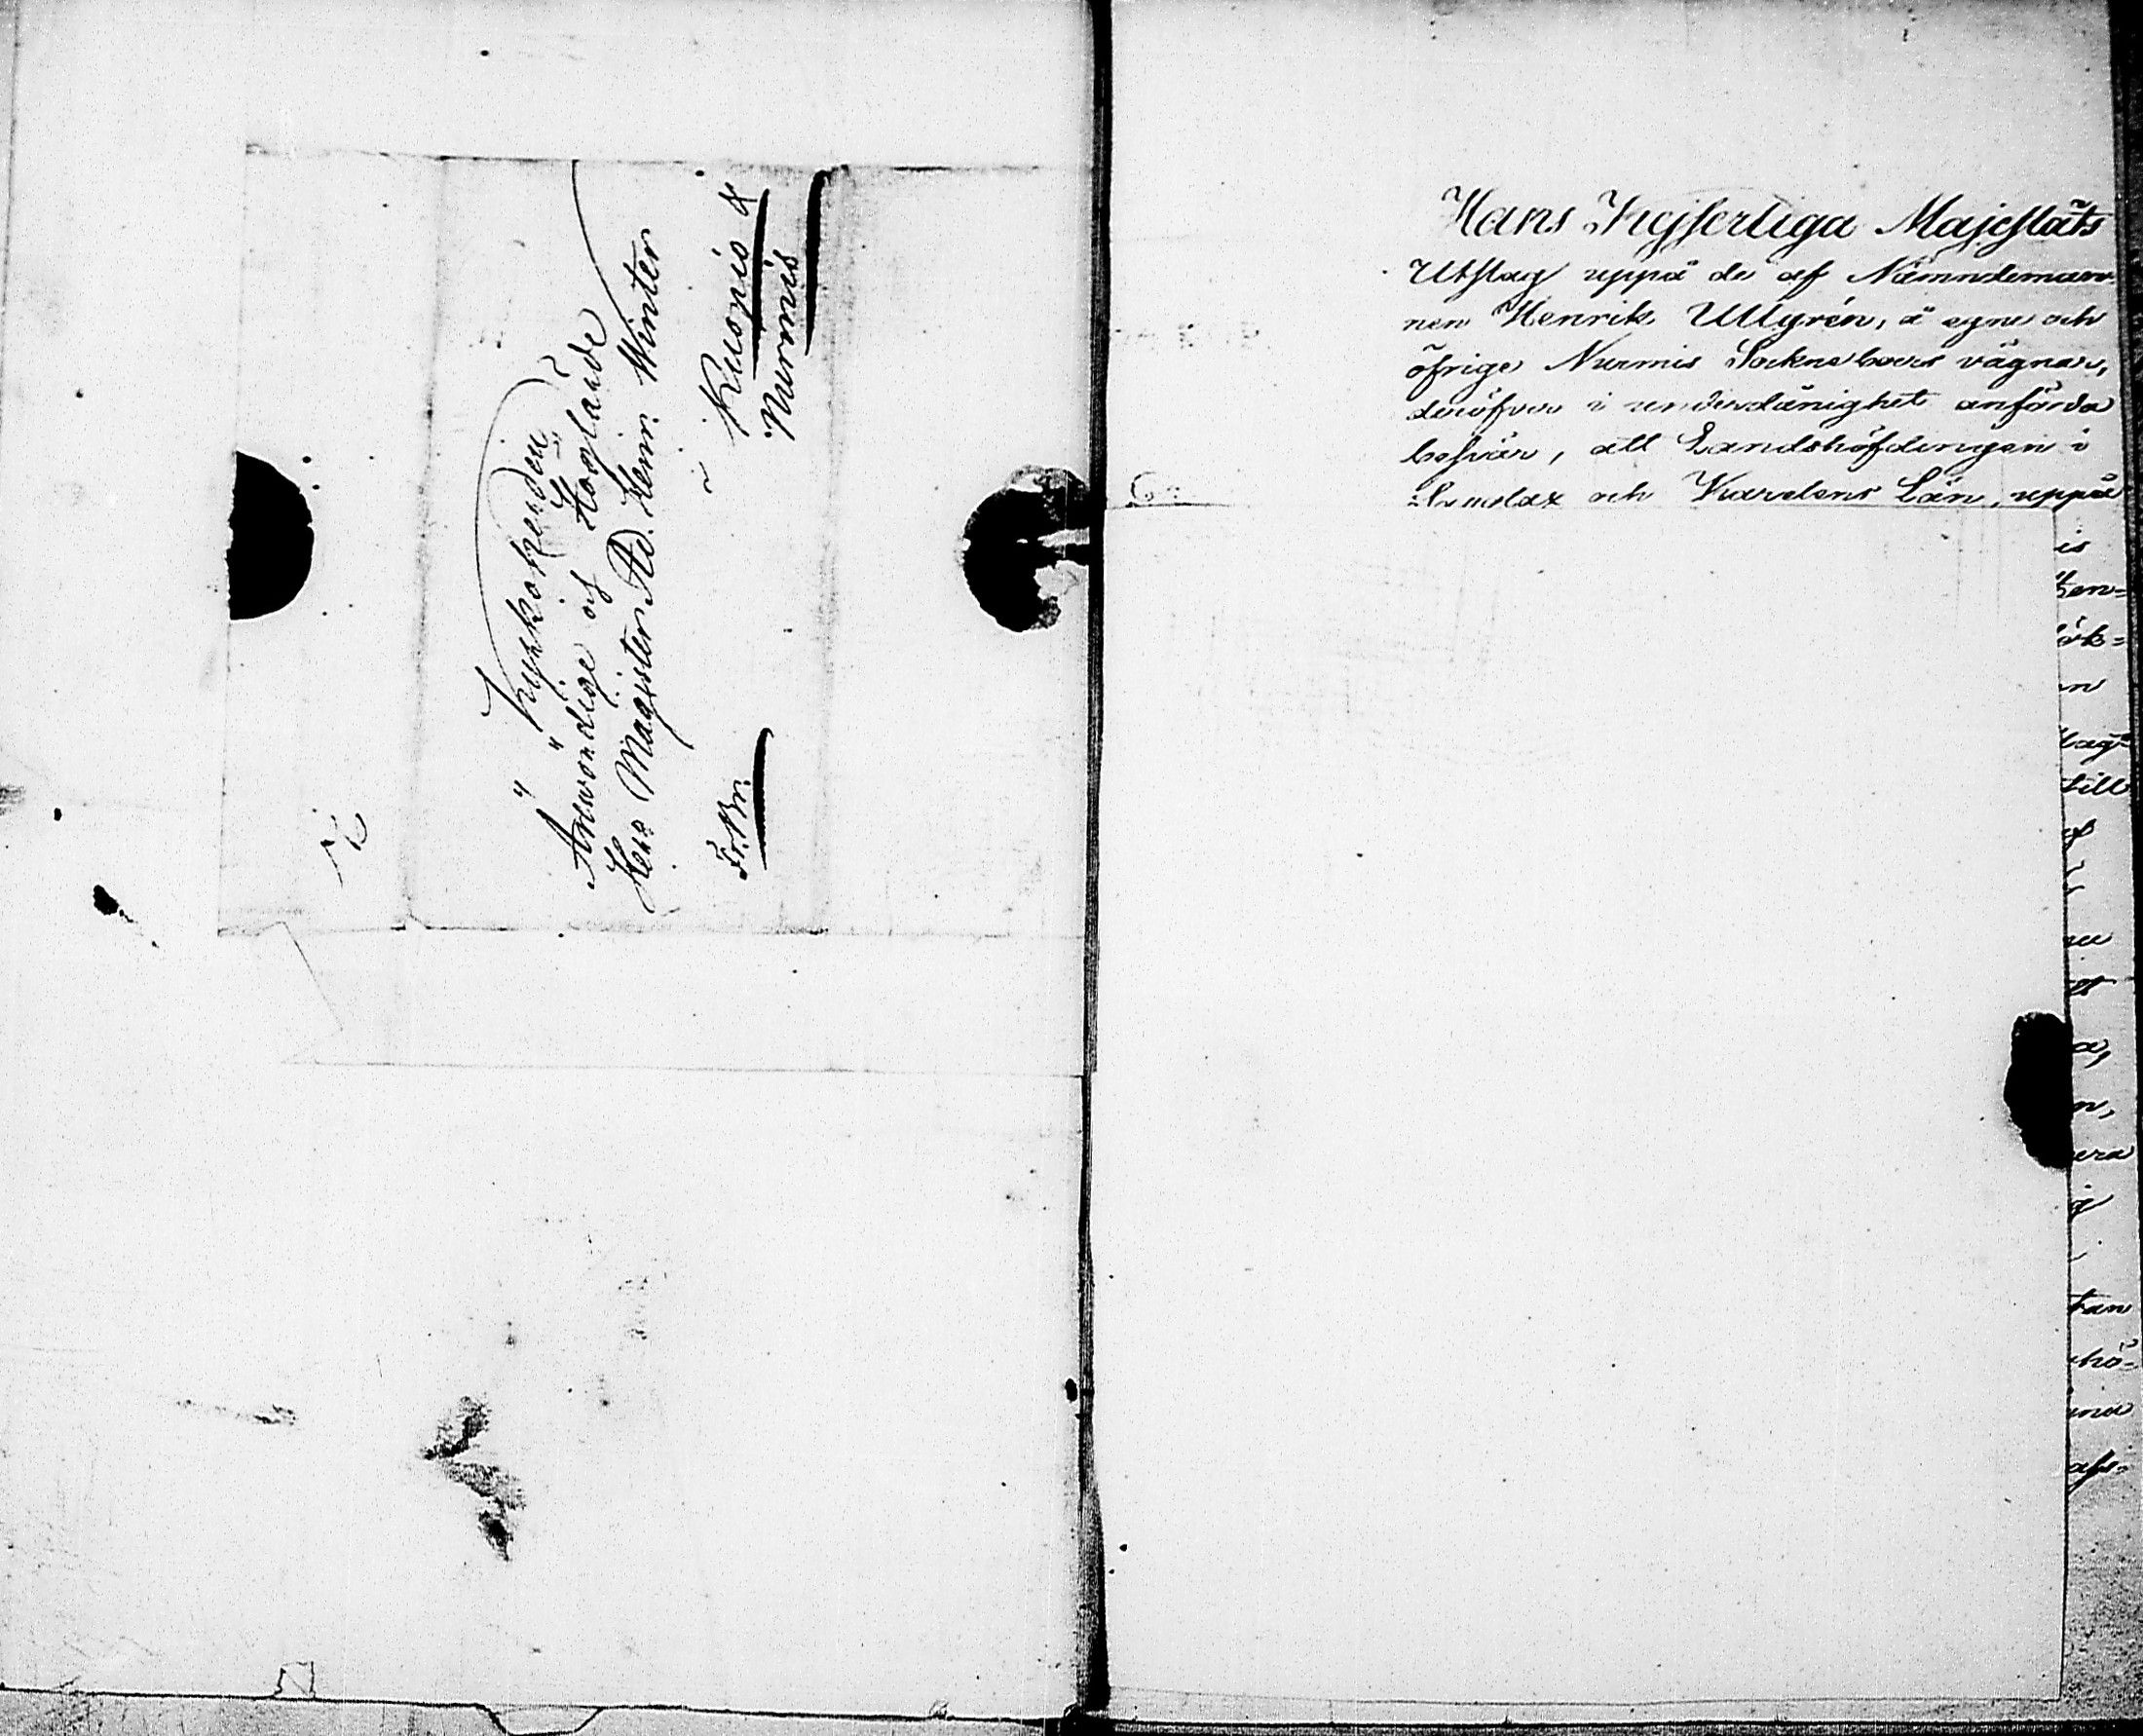 Kyrkoherden
Ärewördige och Höglärde
Herr Magister Ad. Henr. Winter
Kuopio &
Nurmis
Fr. Br.
Hans Kejserliga Majestäts
Utslag uppå de af Nämndeman-
nen Henrik Ullgrén, å egne och
öfrige Nurmis Sockneboers vägnar,
deröfver i underdånighet anförda
besvär, att Landshöfdingen i
och Karelens Län, uppå
is
ten=
örk=
n
till
af
a,
n,
era
tan
hö=